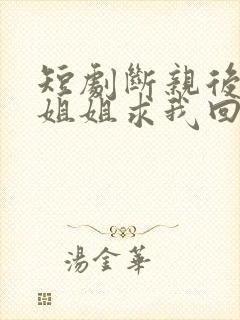 短劇斷親後
姐姐求我回
湯金華